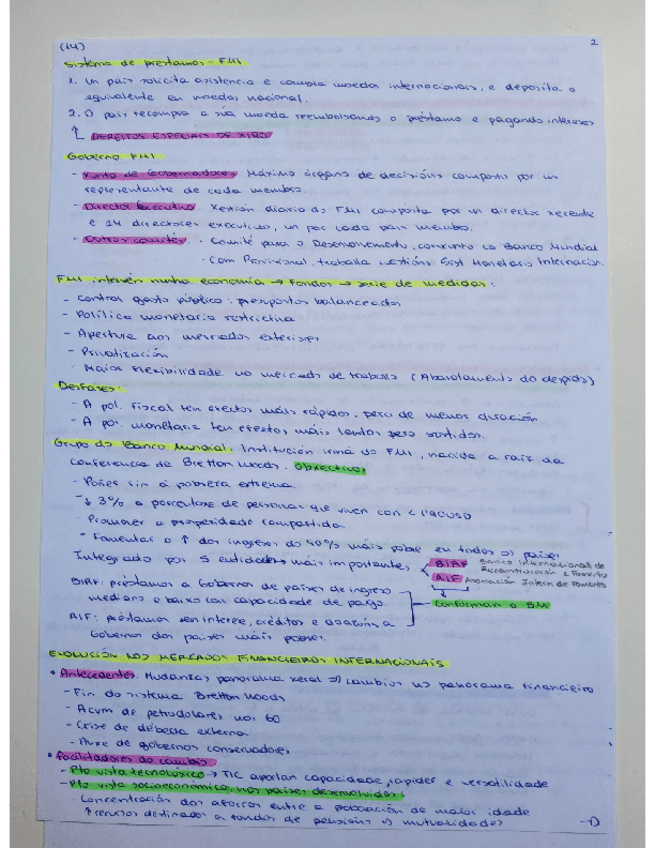 (14) 2
Sistema de préstamos - FMI
1. Un país solicita asistencia e compra moedas internacionais, e deposita o
equivalente en moedas nacional.
2. O país recompra a súa moeda reembolsando o préstamo e pagando intereses
↑ DEREITOS ESPECIAIS DE XIRO
Goberno FMI
- Xunta de Gobernadores. Máximo órgano de decisións composto por un
representante de cada membro.
- Director Executivo. Xestión diaria do FMI composta por un director xerente
e 24 directores executivos, un por cada país membro.
- Outros comités. · Comité para o Desenvolvemento, conxunto co Banco Mundial
· Com Provisional, traballa cuestións Sist Monetario Internacion.
FMI intervén nunha economía → Fondos → serie de medidas:
- Control gasto público: presupostos balanceados
- Política monetaria restrictiva
- Apertura aos mercados exteriores
- Privatización
- Maior flexibilidade no mercado de traballo (Abaratamento do despido)
Desfases:
- A pol. fiscal ten efectos máis rápidos, pero de menos duración
- A pol. monetaria ten efectos máis lentos pero
Grupo do Banco Mundial. Institución irmá do FMI, nacida a raíz da
Conferencia de Bretton Woods. Obxectivos
- Poñer fin á pobreza extrema
- ↓ 3% a porcentaxe de persoas que viven con < 1'90USD
- Promover a prosperidade compartida
- Fomentar o ↑ dos ingresos do 40% máis pobre en todos os países
Integrado por 5 entidades máis importantes < BIRF Banco Internacional de
Reconstrucción e Fomento
AIF Asociación Intern de Fomento
BIRF: préstamos a Gobernos de países de ingreso
mediano e baixo con capacidade de pago → Conforman o BM
AIF: préstamos sen interese, créditos e doazóns a
Gobernos dos países máis pobres.
EVOLUCIÓN NOS MERCADOS FINANCEIROS INTERNACIONAIS
• Antecedentes. Mudanzas panorama xeral ⇒ cambios no panorama financeiro
- Fin do sistema Bretton Woods
- Acum de petrodólares nos 60
- Crise de débeda externa
- Auxe de gobernos conservadores
• Facilitadores do cambio
- Pto vista tecnolóxico → TIC aportan capacidade, rapidez e versatilidade
- Pto vista socioeconómico, nos países desenvolvidos:
Concentración dos aforros entre a poboación de maior idade
↑ recursos destinados a fondos de pensións e mutualidades →